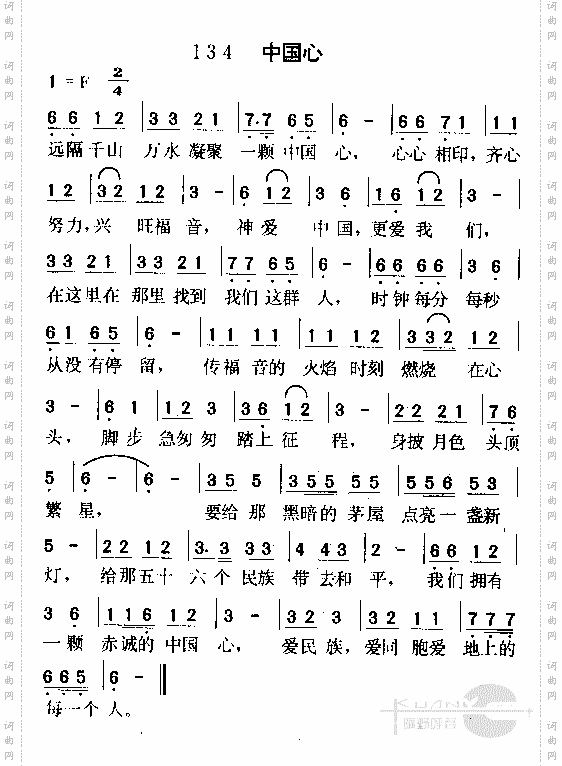 134 中国心
1=F 2/4
66 12 | 33 21 | 7.7 65 | 6 - | 66 71 | 11
远隔千山 万水凝聚 一颗中国 心, 心心相印,齐心
12 | 32 12 | 3 - | 6 12 | 3 2 | 16 12 | 3 -
努力,兴旺福音, 神爱中国,更爱我们,
33 221 | 33 21 | 77 65 | 6 - | 66 66 | 3 6
在这里在那里找到 我们这群人, 时钟每分 每秒
61 65 | 6 - | 11 1 | 11 12 | 332 12
从没有停留, 传福音的火焰时刻燃烧 在心
3 - | 6 1 | 221 2 | 36 12 | 3 - | 22 21 | 76
头, 脚步急匆匆 踏上征程, 身披月色 头顶
5 | 6 - | 6 - | 35 5 | 335 55 | 56 53
繁星, 要给那 黑暗的茅屋 点亮一盏新
5 - | 22 12 | 3.3 33 | 332 12 | 3 - | 66 12
灯, 给那五十六个民族 带去和平, 我们拥有
3 6 | 116 12 | 3 - | 3 22 | 3 22 1 | 777
一颗 赤诚的中国心, 爱民族,爱同胞爱 地上的
665 | 6 -
每一个人。
词曲网
KUANY
旷野呼音